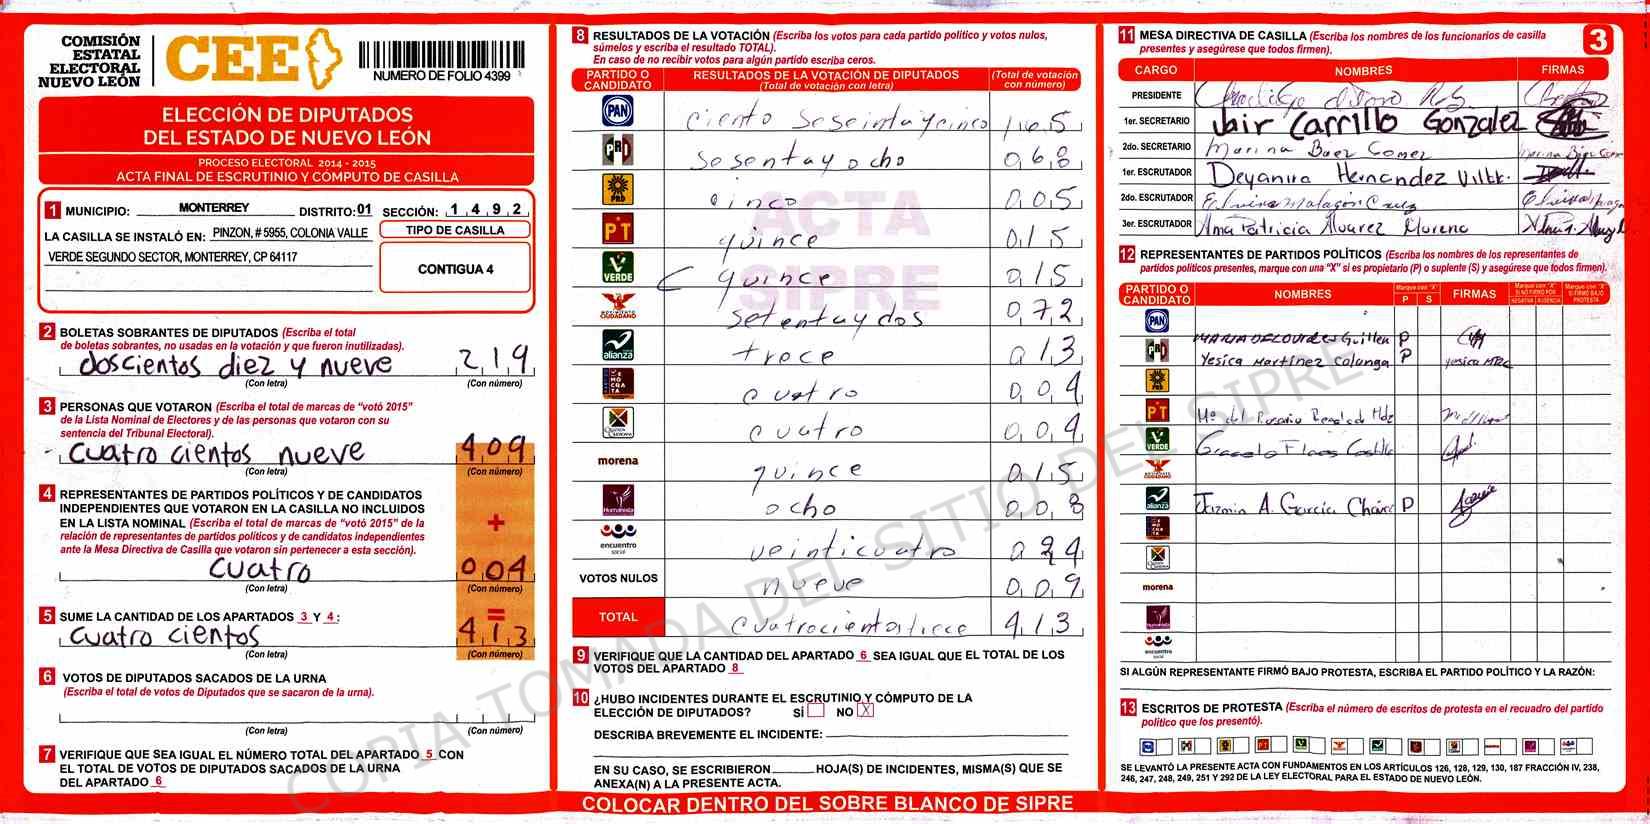 COMISIÓN
ESTATAL
ELECTORAL
NUEVO LEÓN
CEE
NUMERO DE FOLIO 4399
ELECCIÓN DE DIPUTADOS
DEL ESTADO DE NUEVO LEÓN
PROCESO ELECTORAL 2014 - 2015
ACTA FINAL DE ESCRUTINIO Y CÓMPUTO DE CASILLA
1 MUNICIPIO: MONTERREY DISTRITO: 01 SECCIÓN: 1 4 9 2
LA CASILLA SE INSTALÓ EN: PINZON, # 5955, COLONIA VALLE
VERDE SEGUNDO SECTOR, MONTERREY, CP 64117
TIPO DE CASILLA
CONTIGUA 4
2 BOLETAS SOBRANTES DE DIPUTADOS (Escriba el total
de boletas sobrantes, no usadas en la votación y que fueron inutilizadas).
doscientos diez y nueve 219
(Con letra) (Con número)
3 PERSONAS QUE VOTARON (Escriba el total de marcas de “votó 2015”
de la Lista Nominal de Electores y de las personas que votaron con su
sentencia del Tribunal Electoral).
cuatro cientos nueve 409
(Con letra) (Con número)
4 REPRESENTANTES DE PARTIDOS POLÍTICOS Y DE CANDIDATOS
INDEPENDIENTES QUE VOTARON EN LA CASILLA NO INCLUIDOS
EN LA LISTA NOMINAL (Escriba el total de marcas de “votó 2015” de la
relación de representantes de partidos políticos y de candidatos independientes
ante la Mesa Directiva de Casilla que votaron sin pertenecer a esta sección).
+
cuatro 004
(Con letra) (Con número)
5 SUME LA CANTIDAD DE LOS APARTADOS 3 Y 4:
=
cuatro cientos 413
(Con letra) (Con número)
6 VOTOS DE DIPUTADOS SACADOS DE LA URNA
(Escriba el total de votos de Diputados que se sacaron de la urna).
(Con letra) (Con número)
7 VERIFIQUE QUE SEA IGUAL EL NÚMERO TOTAL DEL APARTADO 5 CON
EL TOTAL DE VOTOS DE DIPUTADOS SACADOS DE LA URNA
DEL APARTADO 6
8 RESULTADOS DE LA VOTACIÓN (Escriba los votos para cada partido político y votos nulos,
súmelos y escriba el resultado TOTAL).
En caso de no recibir votos para algún partido escriba ceros.
PARTIDO O CANDIDATO RESULTADOS DE LA VOTACIÓN DE DIPUTADOS (Total de votación con letra) (Total de votación con número)
PAN ciento seseintaycinco 165
PRI sesentayocho 068
PRD cinco 005
PT quince 015
VERDE quince 015
MOVIMIENTO CIUDADANO setentaydos 072
alianza trece 013
DEMÓCRATA cuatro 004
cuatro 004
morena quince 015
Humanista ocho 008
encuentro social veinticuatro 024
VOTOS NULOS nueve 009
TOTAL cuatrocientostrece 413
ACTA
SIPRE
9 VERIFIQUE QUE LA CANTIDAD DEL APARTADO 6 SEA IGUAL QUE EL TOTAL DE LOS
VOTOS DEL APARTADO 8
10 ¿HUBO INCIDENTES DURANTE EL ESCRUTINIO Y CÓMPUTO DE LA
ELECCIÓN DE DIPUTADOS? SÍ NO X
DESCRIBA BREVEMENTE EL INCIDENTE:
EN SU CASO, SE ESCRIBIERON HOJA(S) DE INCIDENTES, MISMA(S) QUE SE
ANEXA(N) A LA PRESENTE ACTA.
COLOCAR DENTRO DEL SOBRE BLANCO DE SIPRE
11 MESA DIRECTIVA DE CASILLA (Escriba los nombres de los funcionarios de casilla
presentes y asegúrese que todos firmen).
3
CARGO NOMBRES FIRMAS
PRESIDENTE
1er. SECRETARIO Jair Carrillo Gonzalez
2do. SECRETARIO Marina Baez Gomez
1er. ESCRUTADOR Deyanira Hernandez
2do. ESCRUTADOR
3er. ESCRUTADOR Ana Patricia Alvarez Moreno
12 REPRESENTANTES DE PARTIDOS POLÍTICOS (Escriba los nombres de los representantes de
partidos políticos presentes, marque con una “X” si es propietario (P) o suplente (S) y asegúrese que todos firmen).
PARTIDO O CANDIDATO NOMBRES Marque con “X” P S FIRMAS Marque con “X” SI NO FIRMÓ POR NEGATIVA AUSENCIA Marque con “X” SI FIRMÓ BAJO PROTESTA
PAN MARIA DE LOURDES Guillen P
PRI Yesica Martinez Colunga P
PRD
PT Mª del Rosario
VERDE Graciela Flores Castillo
MOVIMIENTO CIUDADANO
alianza Jazmin A. Garcia Chavez P
morena
encuentro social
SI ALGÚN REPRESENTANTE FIRMÓ BAJO PROTESTA, ESCRIBA EL PARTIDO POLÍTICO Y LA RAZÓN:
13 ESCRITOS DE PROTESTA (Escriba el número de escritos de protesta en el recuadro del partido
político que los presentó).
SE LEVANTÓ LA PRESENTE ACTA CON FUNDAMENTOS EN LOS ARTÍCULOS 126, 128, 129, 130, 187 FRACCIÓN IV, 238,
246, 247, 248, 249, 251 Y 292 DE LA LEY ELECTORAL PARA EL ESTADO DE NUEVO LEÓN.
COPIA TOMADA DEL SITIO DEL SIPRE